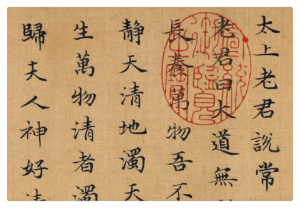 太上老君說常
老君曰大道無
長養萬物吾不
靜天清地濁天
生萬物清者濁
歸夫人神好清